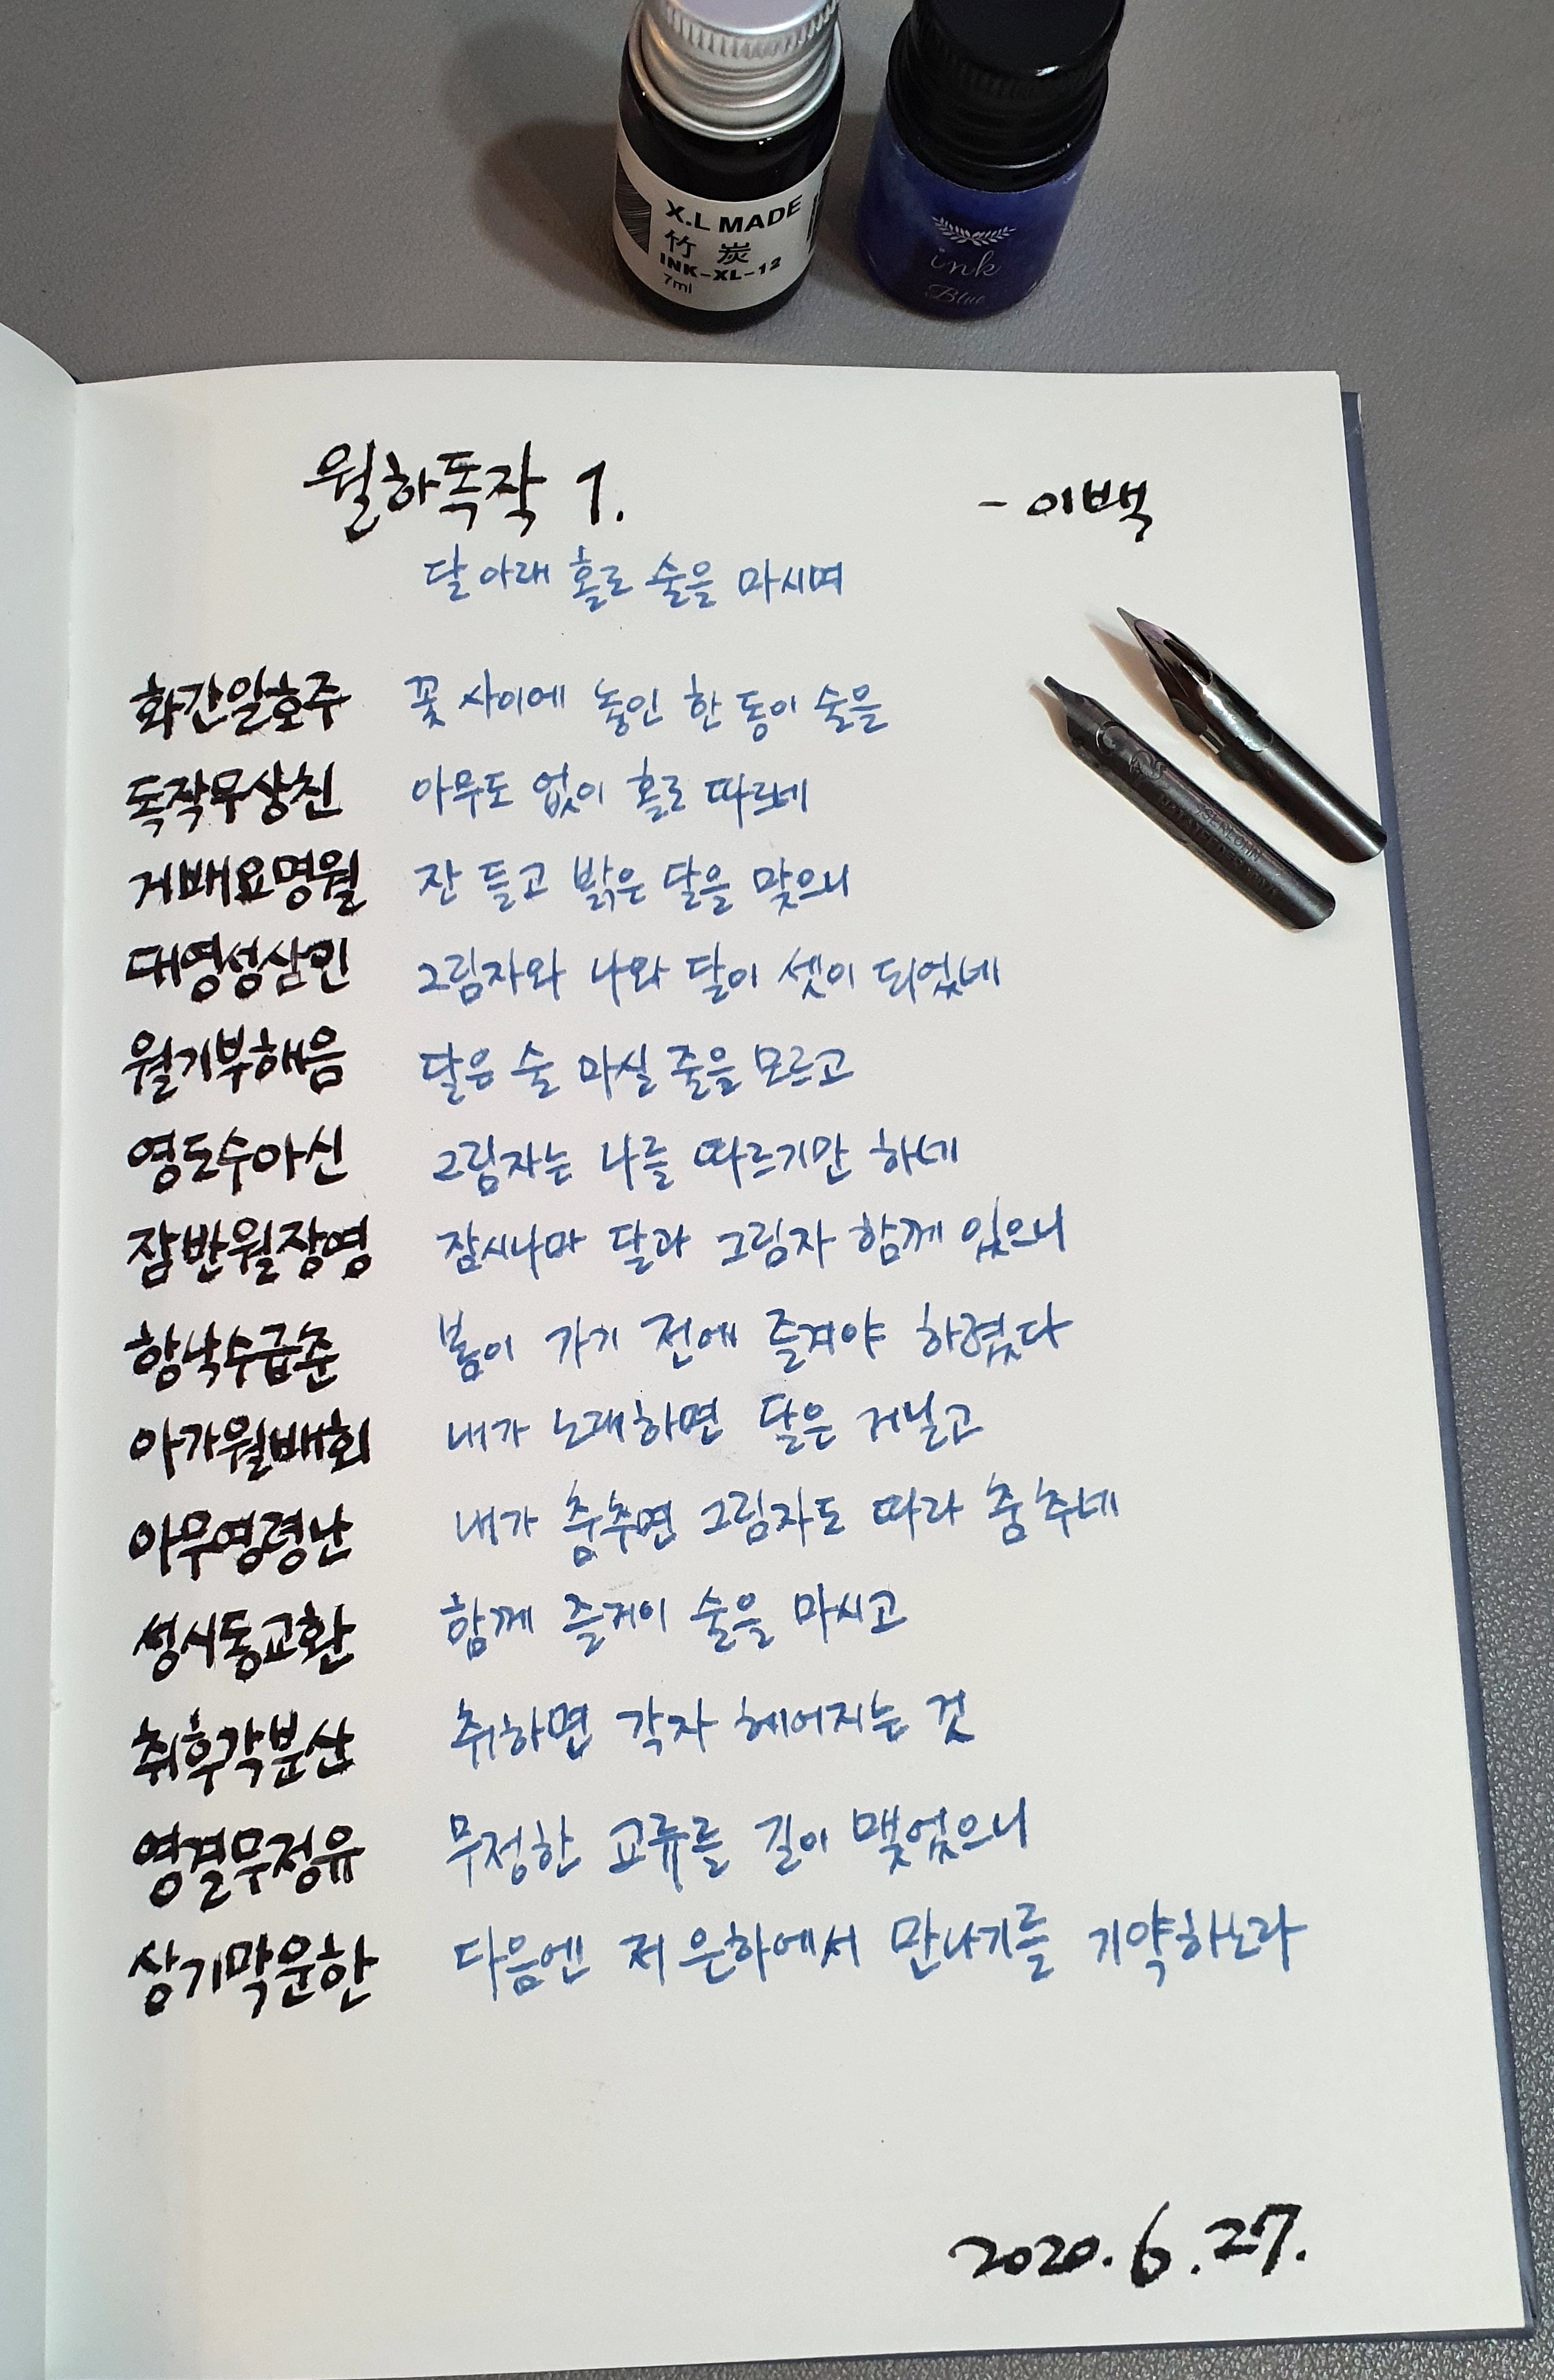 X.L MADE
竹炭
INK-XL-12
7ml
ink
Blue
월하독작 1. - 이백
달 아래 홀로 술을 마시며
화간일호주 꽃 사이에 놓인 한 동이 술을
독작무상친 아무도 없이 홀로 따르네
거배요명월 잔 들고 밝은 달을 맞으니
대영성삼인 그림자와 나와 달이 셋이 되었네
월기부해음 달은 술 마실 줄을 모르고
영도수아신 그림자는 나를 따르기만 하네
잠반월장영 잠시나마 달과 그림자 함께 있으니
항낙수급춘 봄이 가기 전에 즐겨야 하겠다
아가월배회 내가 노래하면 달은 거닐고
아무영령난 내가 춤추면 그림자도 따라 춤추네
성시동교환 함께 즐거이 술을 마시고
취후각분산 취하면 각자 헤어지는 것
영결무정유 무정한 교류를 길이 맺었으니
상기막운한 다음엔 저 은하에서 만나기를 기약하노라
2020.6.27.